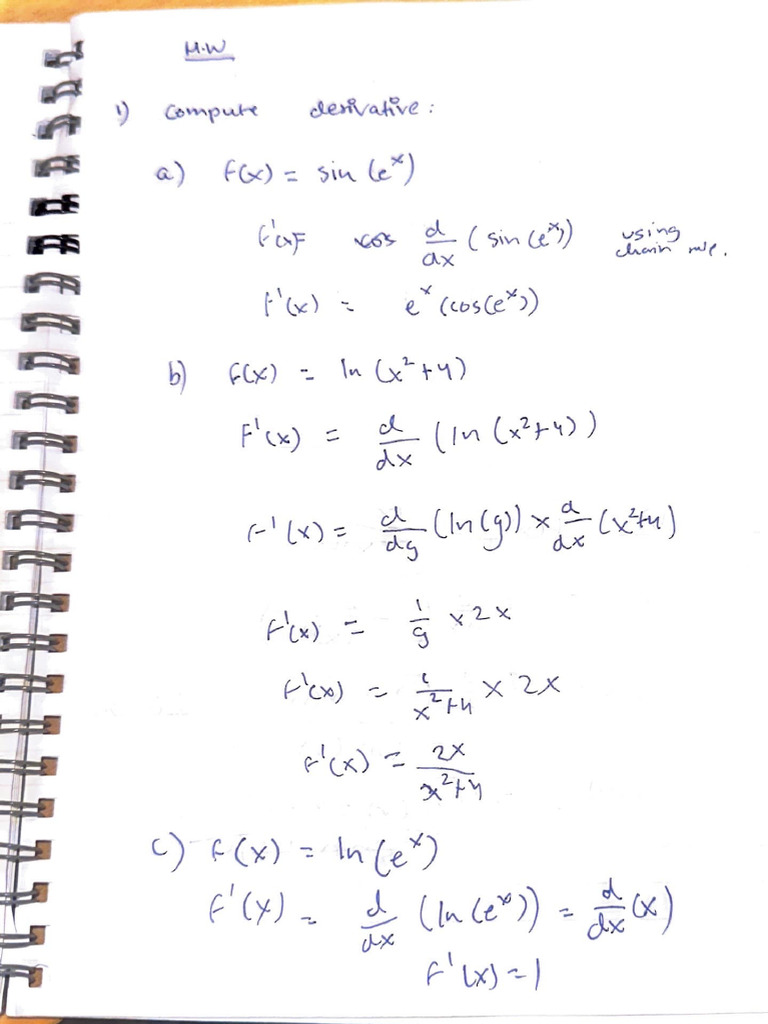 H.W
1) compute derivative:
a) f(x) = sin (e^x)
f'(x)= cos d/dx (sin (e^x)) using chain rule.
f'(x) = e^x (cos(e^x))
b) f(x) = ln (x²+4)
f'(x) = d/dx (ln (x²+4))
f'(x) = d/dg (ln(g)) × d/dx (x²+4)
f'(x) = 1/g × 2x
f'(x) = 1/x²+4 × 2x
f'(x) = 2x/x²+4
c) f(x) = ln(e^x)
f'(x) = d/dx (ln(e^x)) = d/dx (x)
f'(x) = 1